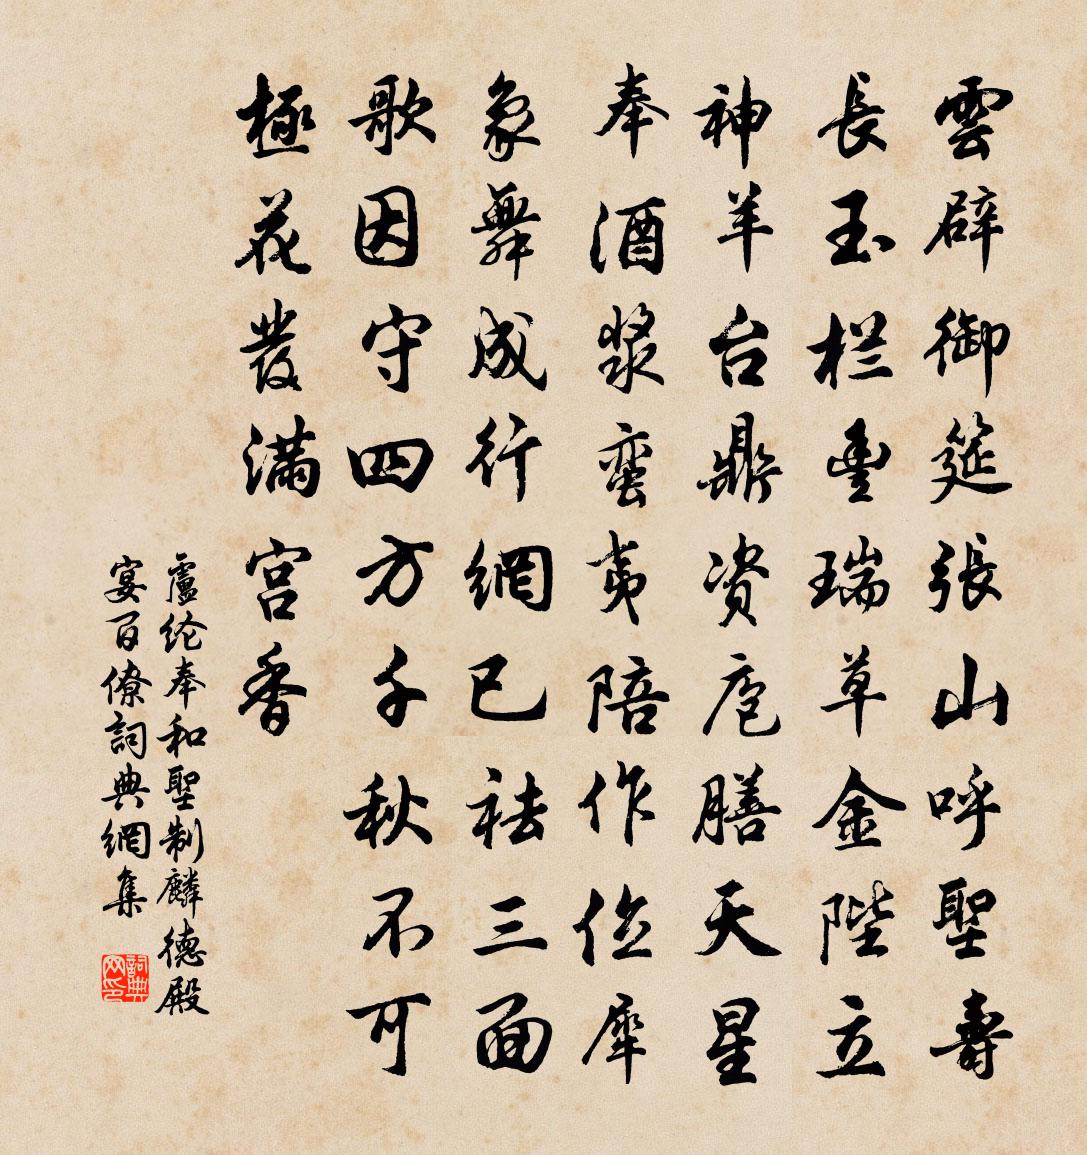 雲辟御筵張山呼聖壽
長玉栏豐瑞草金陛立
神羊台鼎资庖膳天星
奉酒漿蛮夷陪作位犀
象舞成行網已祛三面
歌因守四方千秋不可
極花發滿宫香
盧纶奉和聖制麟德殿
宴百僚詞典網集
詞典网印